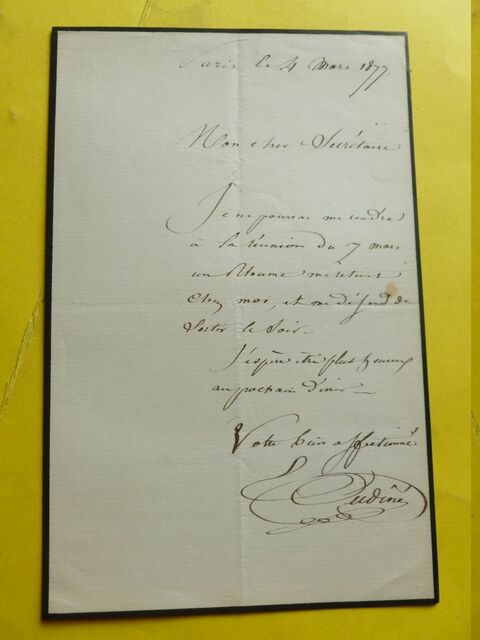 Paris le 4 Mars 1877
Mon cher Secrétaire
Je ne pourrai me rendre
à la réunion du 7 mars
un Rhume me retient
chez moi, et me défend de
sortir le soir.
J'espère être plus heureux
au prochain diner
Votre bien affectionné
E Oudiné